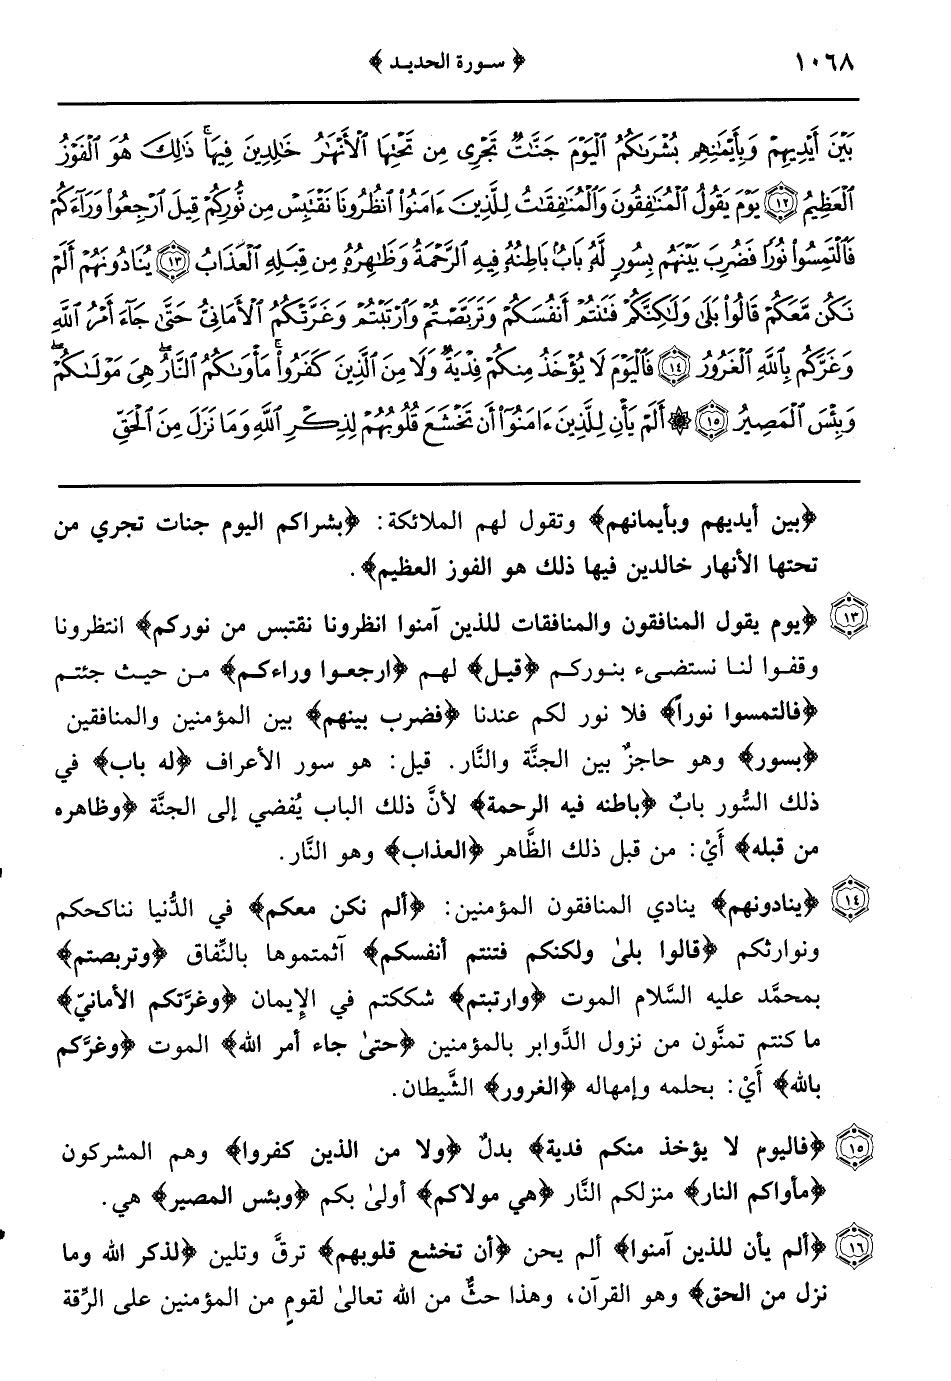 ١٠٦٨ ﴿ سورة الحديد ﴾
بَيْنَ أَيْدِيهِمْ وَبِأَيْمَٰنِهِم بُشْرَىٰكُمُ ٱلْيَوْمَ جَنَّٰتٌ تَجْرِى مِن تَحْتِهَا ٱلْأَنْهَٰرُ خَٰلِدِينَ فِيهَا ۚ ذَٰلِكَ هُوَ ٱلْفَوْزُ
ٱلْعَظِيمُ ١٢ يَوْمَ يَقُولُ ٱلْمُنَٰفِقُونَ وَٱلْمُنَٰفِقَٰتُ لِلَّذِينَ ءَامَنُوا۟ ٱنظُرُونَا نَقْتَبِسْ مِن نُّورِكُمْ قِيلَ ٱرْجِعُوا۟ وَرَآءَكُمْ
فَٱلْتَمِسُوا۟ نُورًا فَضُرِبَ بَيْنَهُم بِسُورٍ لَّهُۥ بَابٌۢ بَاطِنُهُۥ فِيهِ ٱلرَّحْمَةُ وَظَٰهِرُهُۥ مِن قِبَلِهِ ٱلْعَذَابُ ١٣ يُنَادُونَهُمْ أَلَمْ
نَكُن مَّعَكُمْ قَالُوا۟ بَلَىٰ وَلَٰكِنَّكُمْ فَتَنتُمْ أَنفُسَكُمْ وَتَرَبَّصْتُمْ وَٱرْتَبْتُمْ وَغَرَّتْكُمُ ٱلْأَمَانِىُّ حَتَّىٰ جَآءَ أَمْرُ ٱللَّهِ
وَغَرَّكُم بِٱللَّهِ ٱلْغَرُورُ ١٤ فَٱلْيَوْمَ لَا يُؤْخَذُ مِنكُمْ فِدْيَةٌ وَلَا مِنَ ٱلَّذِينَ كَفَرُوا۟ ۚ مَأْوَىٰكُمُ ٱلنَّارُ ۖ هِىَ مَوْلَىٰكُمْ ۖ
وَبِئْسَ ٱلْمَصِيرُ ١٥ ۞ أَلَمْ يَأْنِ لِلَّذِينَ ءَامَنُوٓا۟ أَن تَخْشَعَ قُلُوبُهُمْ لِذِكْرِ ٱللَّهِ وَمَا نَزَلَ مِنَ ٱلْحَقِّ
﴿بين أيديهم وبأيمانهم﴾ وتقول لهم الملائكة: ﴿بشراكم اليوم جنات تجري من
تحتها الأنهار خالدين فيها ذلك هو الفوز العظيم﴾.
١٣ ﴿يوم يقول المنافقون والمنافقات للذين آمنوا انظرونا نقتبس من نوركم﴾ انتظرونا
وقفوا لنا نستضيء بنوركم ﴿قيل﴾ لهم ﴿ارجعوا وراءكم﴾ من حيث جئتم
﴿فالتمسوا نوراً﴾ فلا نور لكم عندنا ﴿فضرب بينهم﴾ بين المؤمنين والمنافقين
﴿بسور﴾ وهو حاجزٌ بين الجنَّة والنَّار. قيل: هو سور الأعراف ﴿له باب﴾ في
ذلك السُّور بابٌ ﴿باطنه فيه الرحمة﴾ لأنَّ ذلك الباب يُفضي إلى الجنَّة ﴿وظاهره
من قبله﴾ أَيْ: من قبل ذلك الظَّاهر ﴿العذاب﴾ وهو النَّار.
١٤ ﴿ينادونهم﴾ ينادي المنافقون المؤمنين: ﴿ألم نكن معكم﴾ في الدُّنيا نناكحكم
ونوارثكم ﴿قالوا بلىٰ ولكنكم فتنتم أنفسكم﴾ آثمتموها بالنِّفاق ﴿وتربصتم﴾
بمحمَّد عليه السَّلام الموت ﴿وارتبتم﴾ شككتم في الإِيمان ﴿وغرَّتكم الأمانيّ﴾
ما كنتم تمنَّون من نزول الدَّوابر بالمؤمنين ﴿حتىٰ جاء أمر الله﴾ الموت ﴿وغرَّكم
بالله﴾ أَيْ: بحلمه وإمهاله ﴿الغرور﴾ الشَّيطان.
١٥ ﴿فاليوم لا يؤخذ منكم فدية﴾ بدلٌ ﴿ولا من الذين كفروا﴾ وهم المشركون
﴿مأواكم النار﴾ منزلكم النَّار ﴿هي مولاكم﴾ أولىٰ بكم ﴿وبئس المصير﴾ هي.
١٦ ﴿ألم يأن للذين آمنوا﴾ ألم يحن ﴿أن تخشع قلوبهم﴾ ترقَّ وتلين ﴿لذكر الله وما
نزل من الحق﴾ وهو القرآن، وهذا حثٌّ من الله تعالىٰ لقومٍ من المؤمنين على الرِّقة